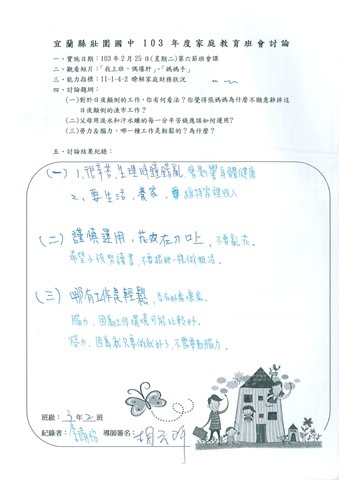 宜蘭縣壯圍國中 103 年度家庭教育班會討論
一、實施日期：103 年 2 月 25 日(星期二)第六節班會課
二、觀看短片：「我上班，偶爆肝」、「媽媽手」
三、能力指標：II-1-4-2 瞭解家庭財務狀況
四、討論題綱：
(一)對於日夜顛倒的工作，你有何看法？你覺得張媽媽為什麼不願意辭掉這
日夜顛倒的漁市工作？
(二)父母用淡水和汗水賺的每一分辛苦錢應該如何運用？
(三)勞力&腦力，哪一種工作是輕鬆的？為什麼？
五、討論結果紀錄：
(一) 1. 很辛苦，生理時鐘錯亂，會影響身體健康
2. 要生活、養家，維持家裡收入
(二) 謹慎運用，花在刀口上，不要亂花。
希望小孩努讀書，不要跟他一樣做粗活。
(三) 哪有工作是輕鬆，
腦力，因為工作環境可能比較好。
勞力，因為就只要做就好了，不需要動腦力。
班級：3 年 2 班
紀錄者：李 導師簽名：胡